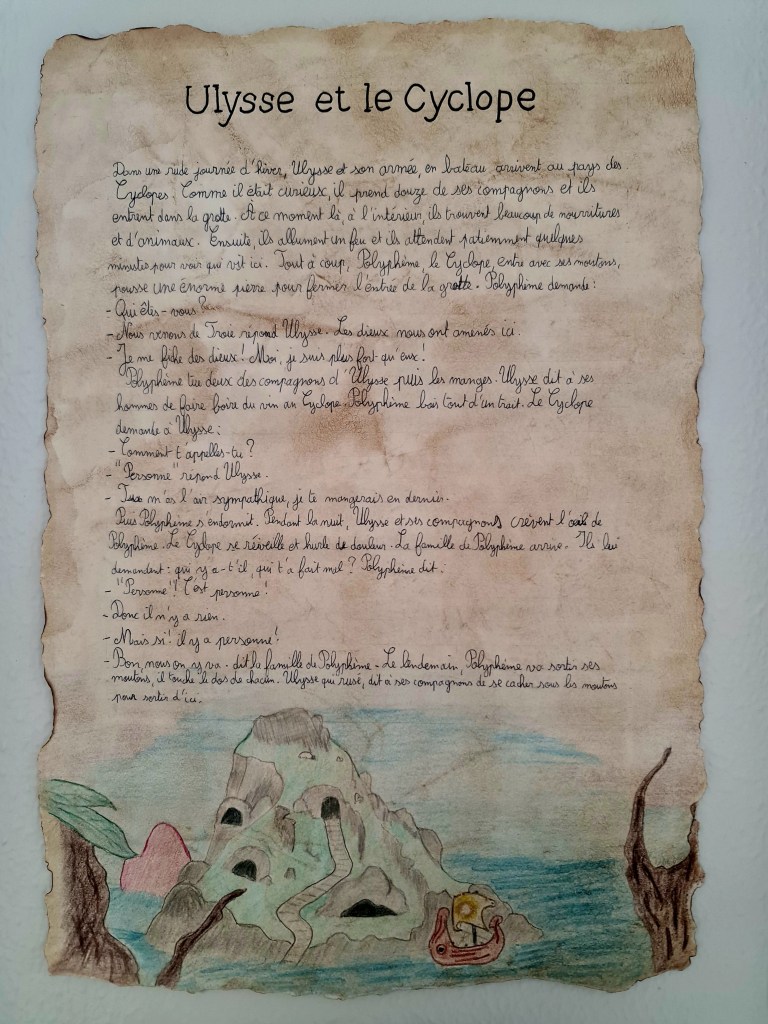 Ulysse et le Cyclope
Dans une rude journée d'hiver, Ulysse et son armée, en bateau, arrivent au pays des
Cyclopes. Comme il était curieux, il prend douze de ses compagnons et ils
entrent dans la grotte. A ce moment là, à l'intérieur, ils trouvent beaucoup de nourritures
et d'animaux. Ensuite, ils allument un feu et ils attendent patiemment quelques
minutes pour voir qui vit ici. Tout à coup, Polyphème, le Cyclope, entre avec ses moutons,
pousse une énorme pierre pour fermer l'entrée de la grotte. Polyphème demande :
- Qui êtes-vous ?
- Nous venons de Troie répond Ulysse. Les dieux nous ont amenés ici.
- Je me fiche des dieux ! Moi, je suis plus fort qu'eux !
Polyphème tu deux des compagnons d'Ulysse puis les manges. Ulysse dit à ses
hommes de faire boire du vin au Cyclope. Polyphème bois tout d'un trait. Le Cyclope
demande à Ulysse :
- Comment t'appelles-tu ?
- "Personne" répond Ulysse.
- Tu m'as l'air sympathique, je te mangerais en dernier.
Puis Polyphème s'endormit. Pendant la nuit, Ulysse et ses compagnons crèvent l'œil de
Polyphème. Le Cyclope se réveille et hurle de douleur. La famille de Polyphème arrive. Ils lui
demandent : qui y a-t'il, qui t'a fait mal ? Polyphème dit :
- "Personne"! C'est personne !
- Donc il n'y a rien.
- Mais si ! il y a personne !
- Bon, nous on y va. dit la famille de Polyphème - Le lendemain, Polyphème va sortir ses
moutons, il touche le dos de chacun. Ulysse qui rusé, dit à ses compagnons de se cacher sous les moutons
pour sortir d'ici.